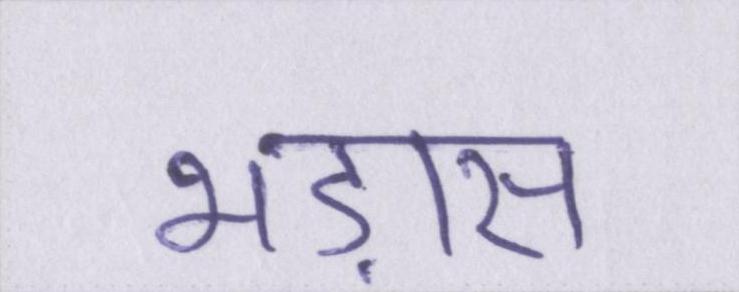 भड़ास